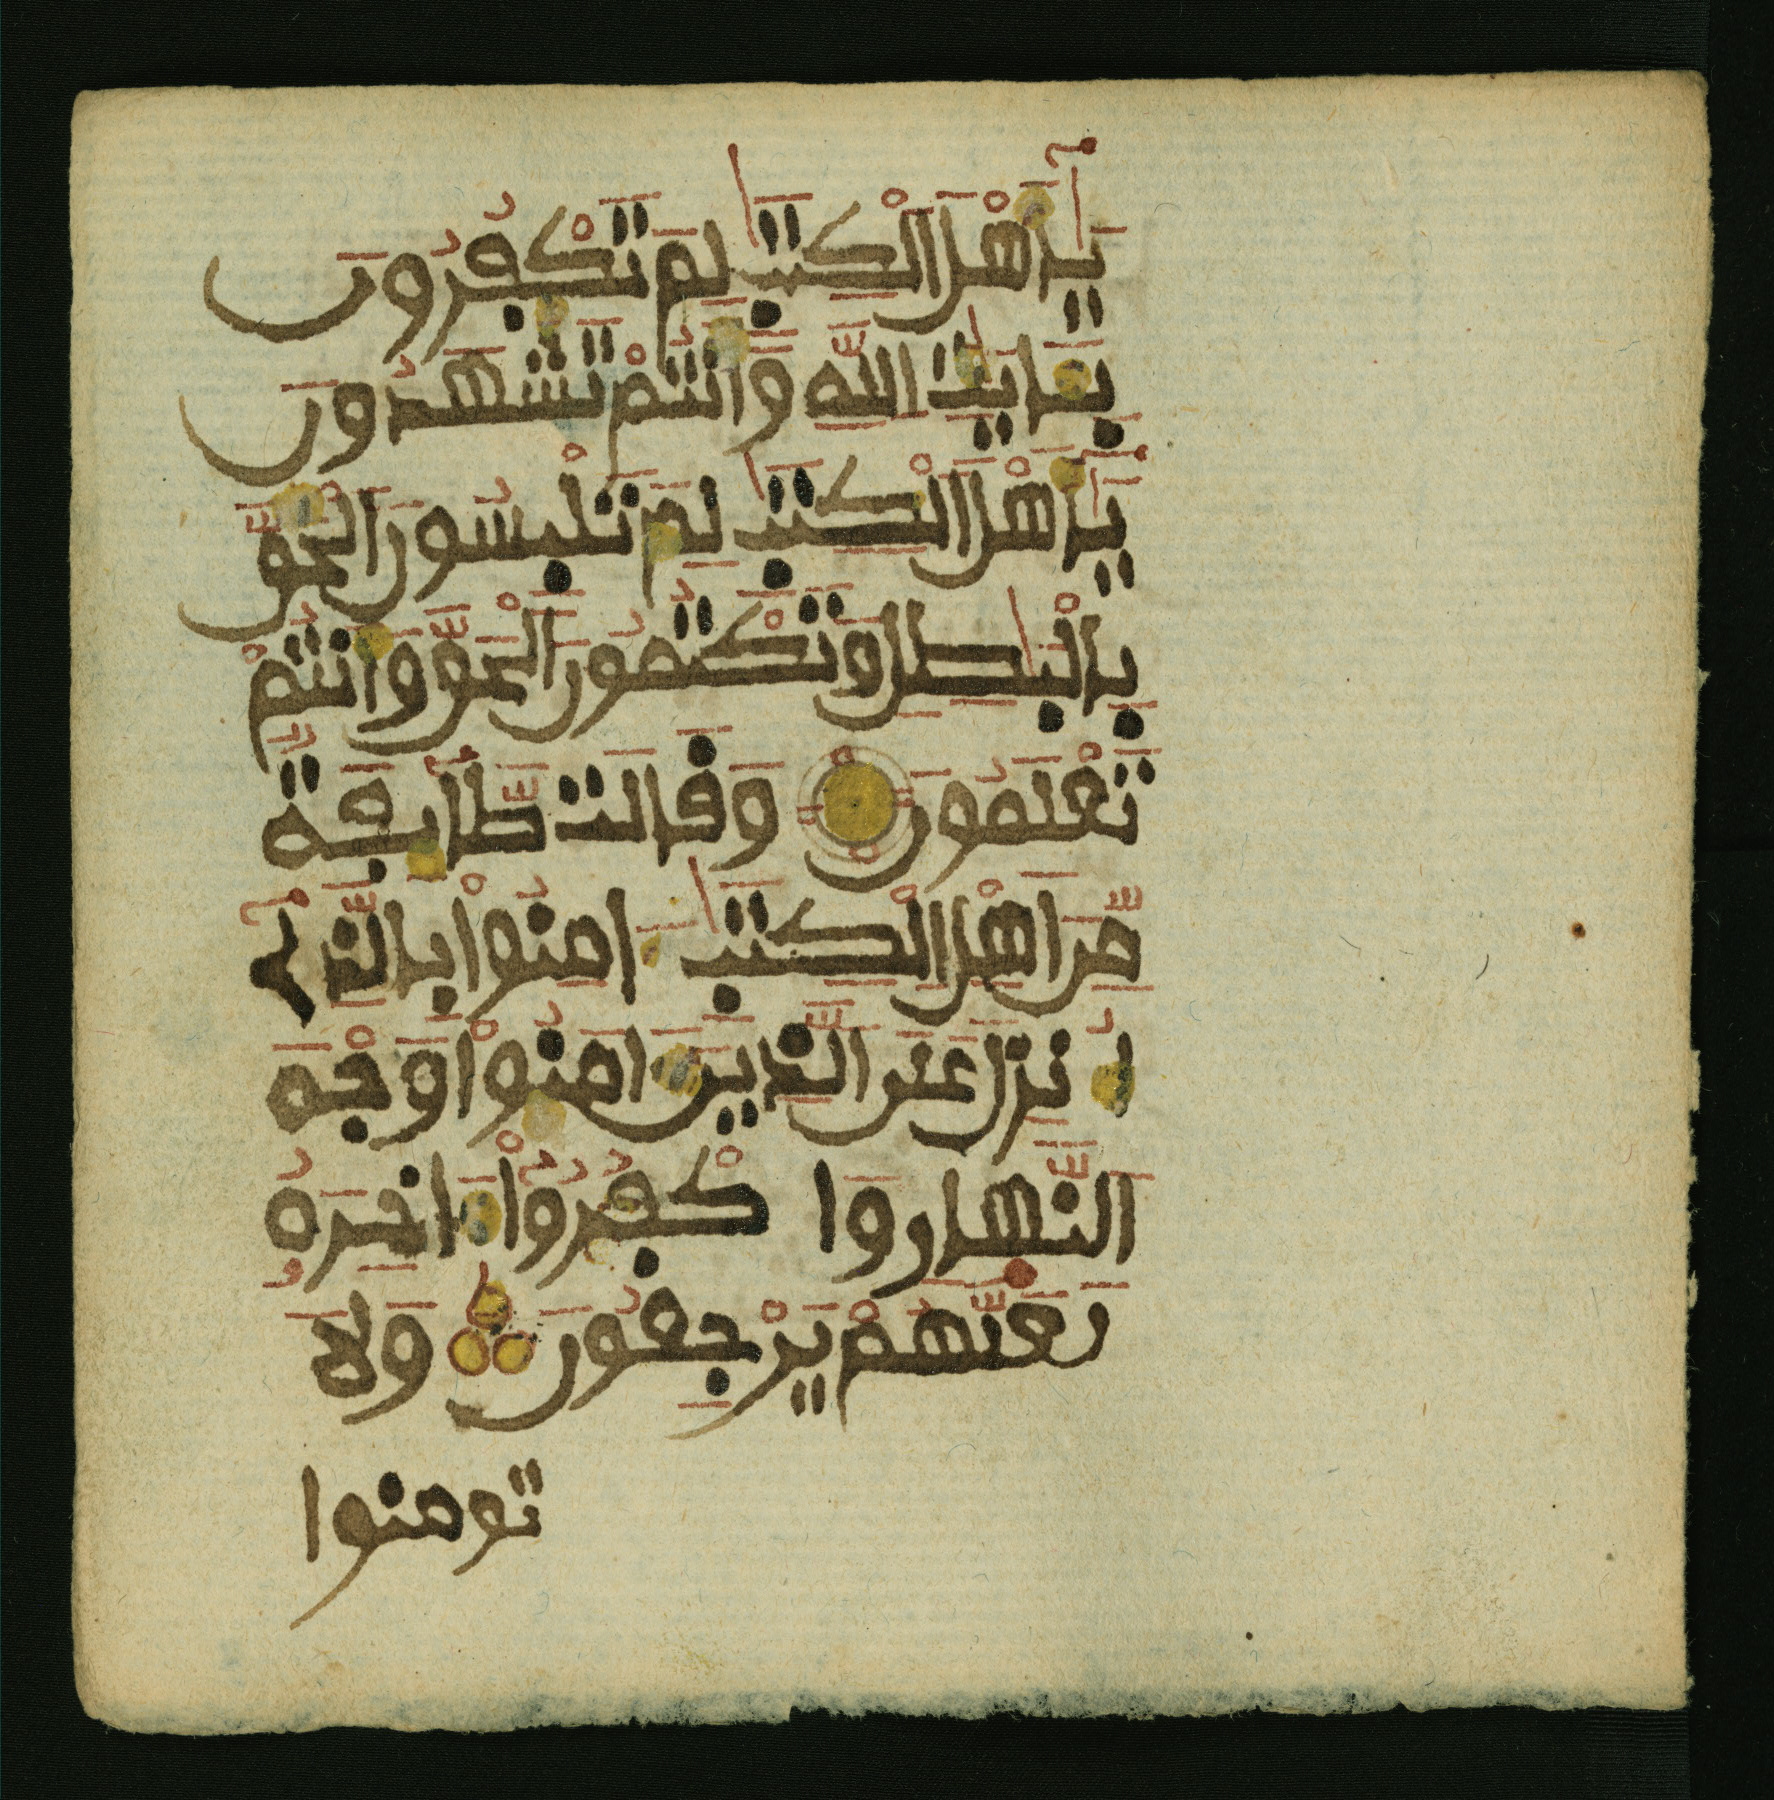 يَٰٓأَهْلَ الْكِتَٰبِ لِمَ تَكْفُرُونَ
بِـَٔايَٰتِ اللَّهِ وَأَنتُمْ تَشْهَدُونَ
يَٰٓأَهْلَ الْكِتَٰبِ لِمَ تَلْبِسُونَ الْحَقَّ
بِالْبَٰطِلِ وَتَكْتُمُونَ الْحَقَّ وَأَنتُمْ
تَعْلَمُونَ وَقَالَت طَّآئِفَةٌ
مِّنَ اَهْلِ الْكِتَٰبِ ءَامِنُوا بِالَّذِي
أُنزِلَ عَلَى الَّذِينَ ءَامَنُوا وَجْهَ
النَّهَارِ وَا كْفُرُوا ءَاخِرَهُ
لَعَلَّهُمْ يَرْجِعُونَ وَلَا
تومنوا